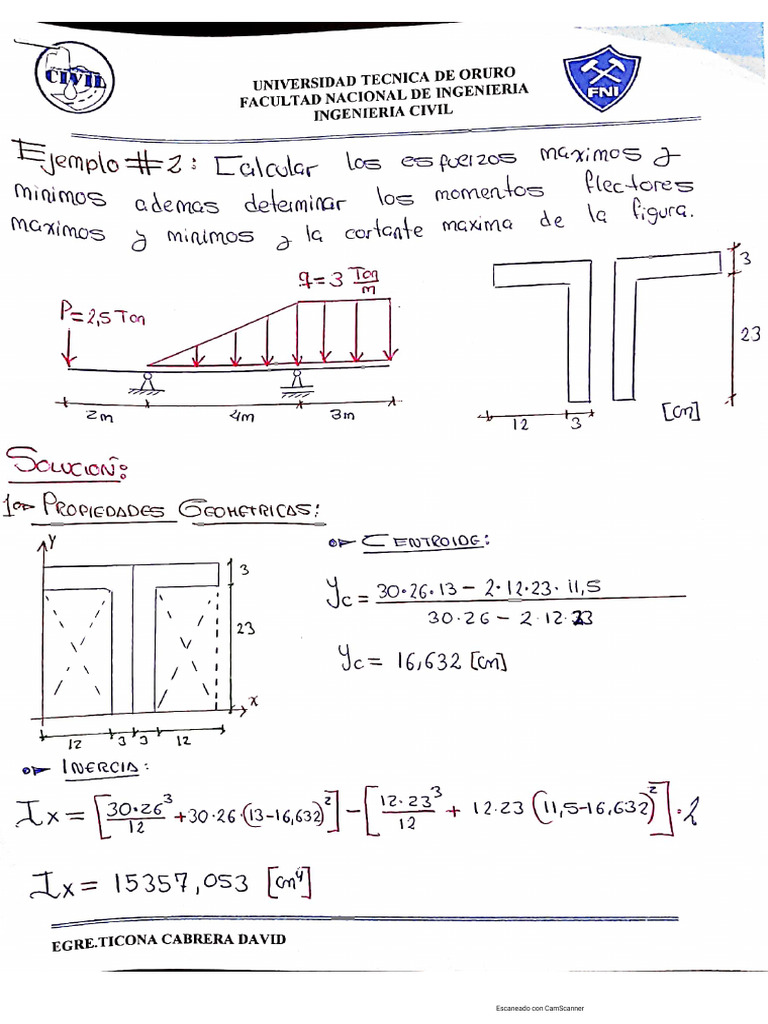 CIVIL
UNIVERSIDAD TECNICA DE ORURO
FACULTAD NACIONAL DE INGENIERIA
INGENIERIA CIVIL
FNI
Ejemplo #2: Calcular los esfuerzos maximos y
minimos ademas determinar los momentos flectores
maximos y minimos y la cortante maxima de la figura.
q=3 Ton/m
P=2,5 Ton
2m 4m 3m
3
23
12 3 [cm]
SOLUCION:
1º► PROPIEDADES GEOMETRICAS:
Y
3
23
X
12 3 3 12
► CENTROIDE:
Yc = (30·26·13 – 2·12·23·11,5) / (30·26 – 2·12·23)
Yc = 16,632 [cm]
► INERCIA:
Ix = [30·26³/12 + 30·26·(13-16,632)²] – [12·23³/12 + 12·23 (11,5-16,632)²]·2
Ix = 15357,053 [cm⁴]
EGRE.TICONA CABRERA DAVID
Escaneado con CamScanner